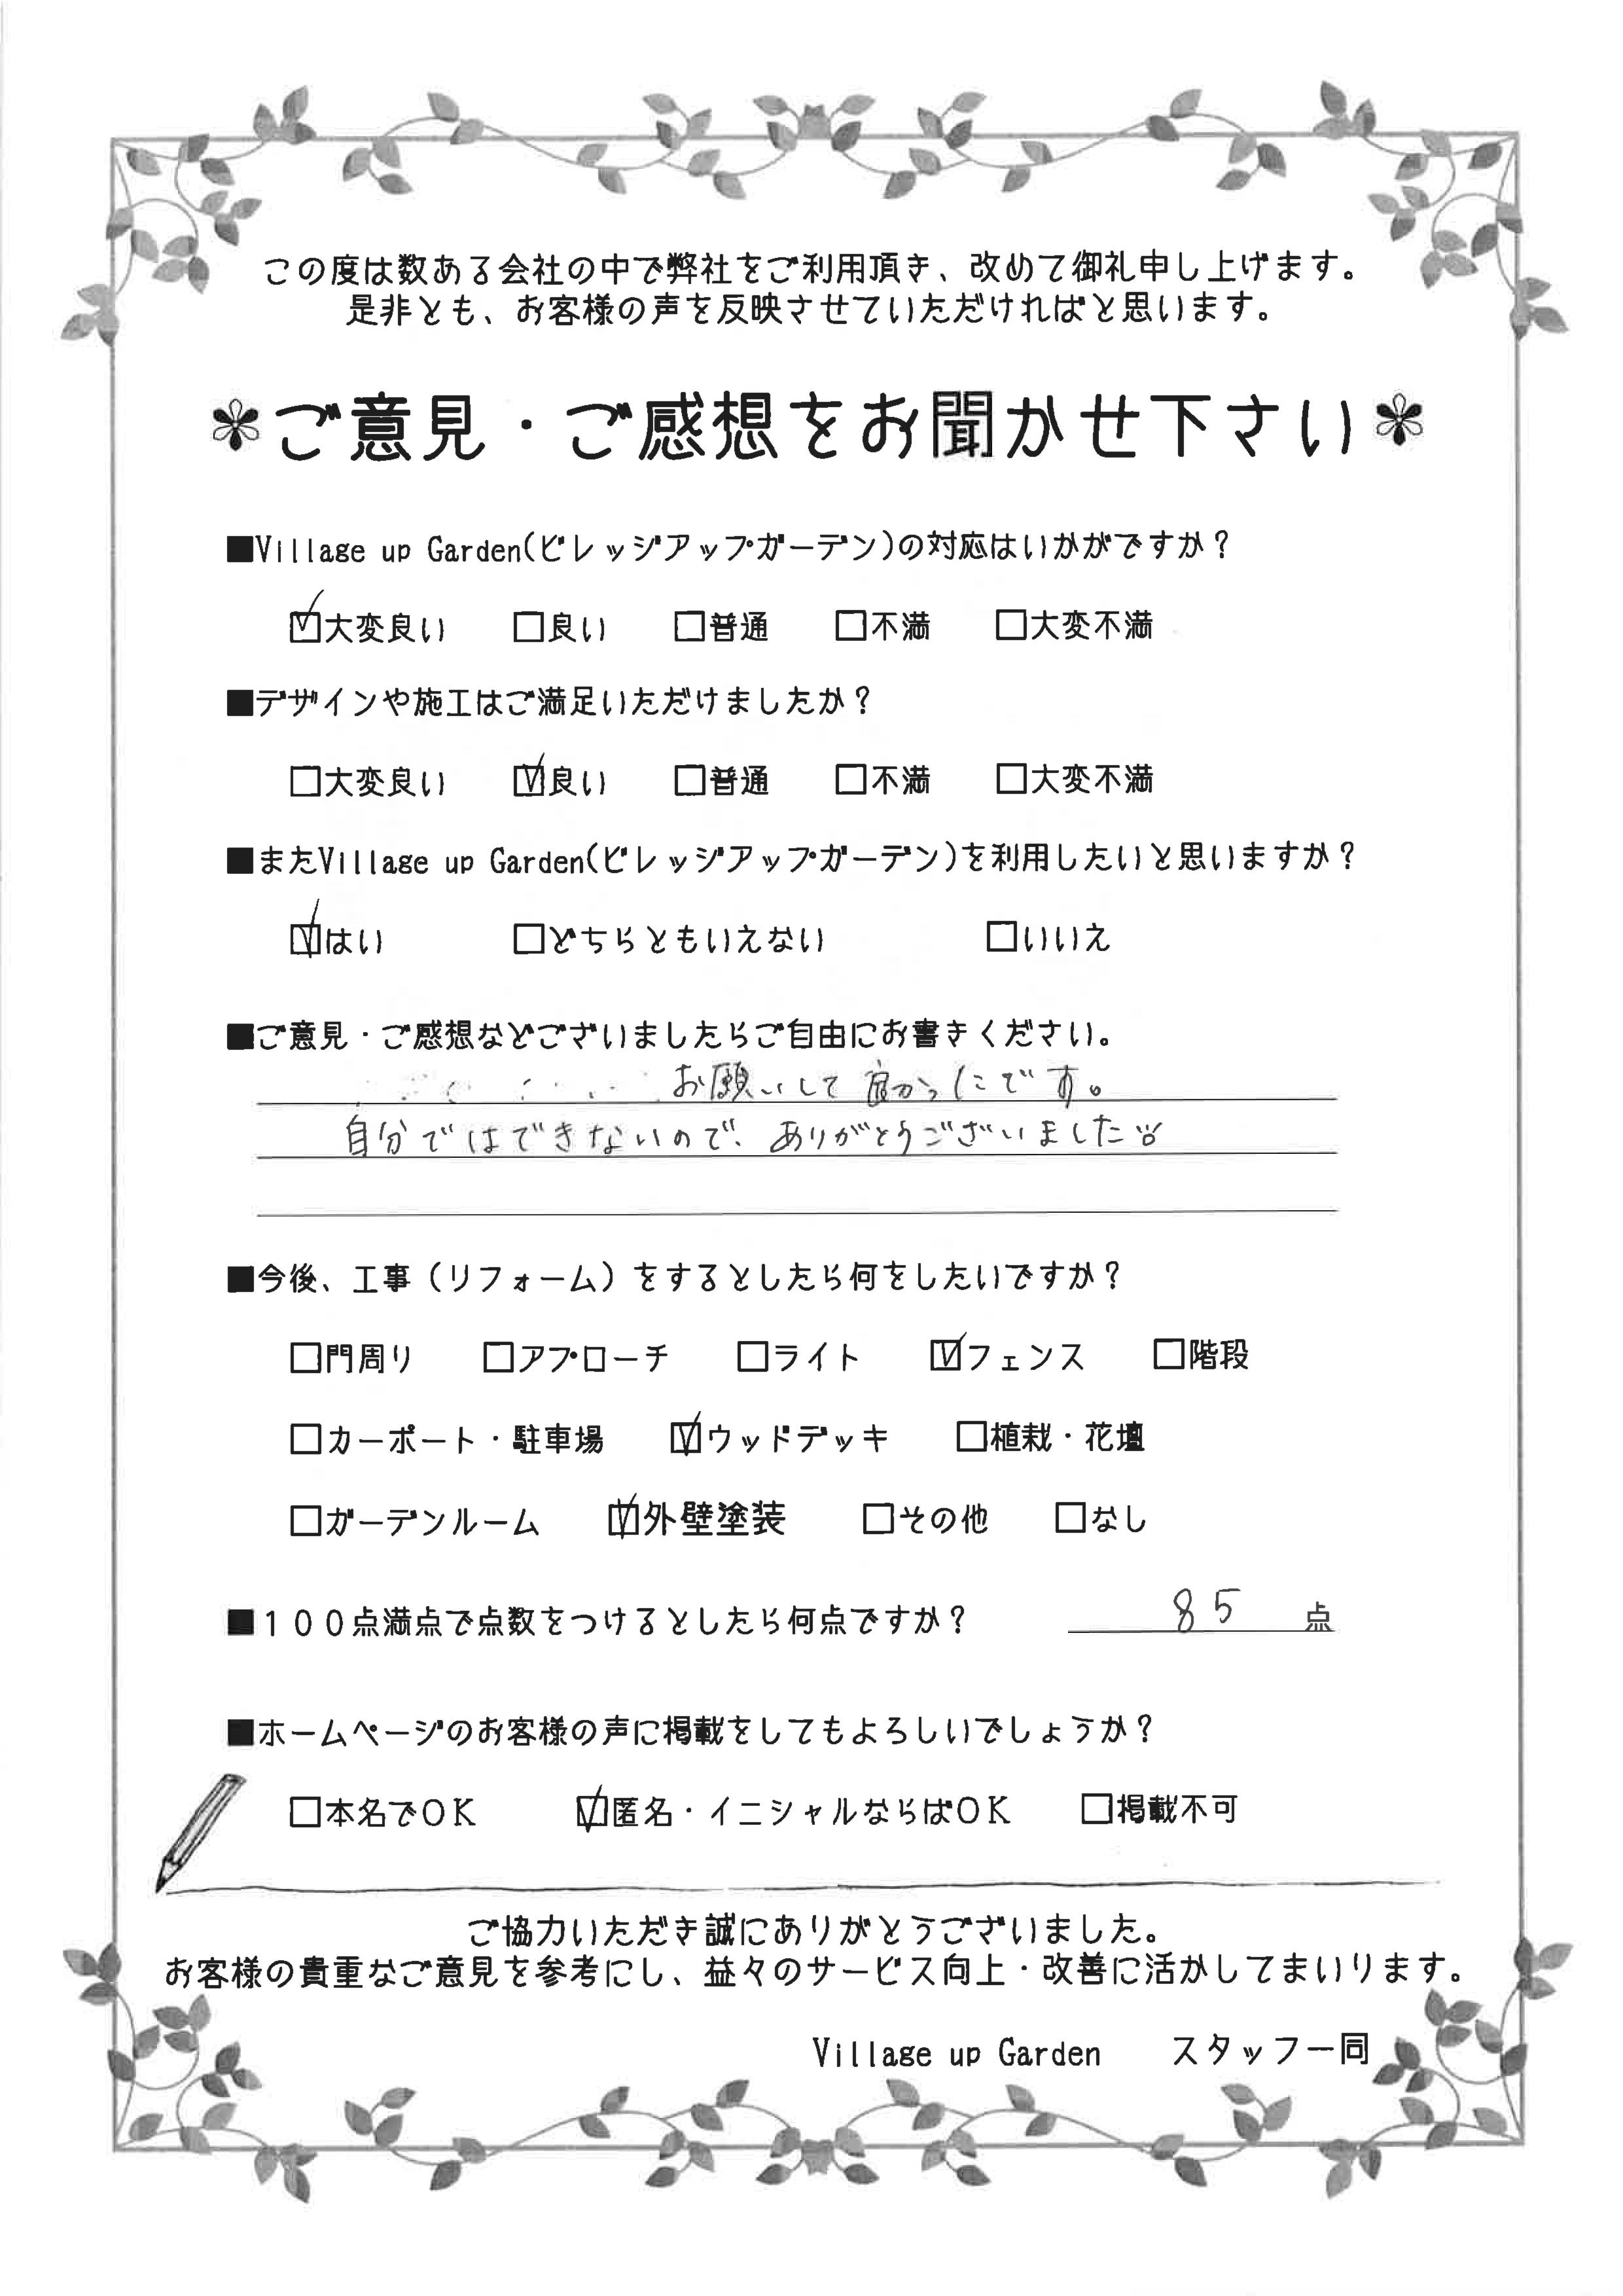 この度は数ある会社の中で弊社をご利用頂き、改めて御礼申し上げます。
是非とも、お客様の声を反映させていただければと思います。
ご意見・ご感想をお聞かせ下さい
■Village up Garden(ビレッジアップガーデン)の対応はいかがですか？
☑大変良い □良い □普通 □不満 □大変不満
■デザインや施工はご満足いただけましたか？
□大変良い ☑良い □普通 □不満 □大変不満
■またVillage up Garden(ビレッジアップガーデン)を利用したいと思いますか？
☑はい □どちらともいえない □いいえ
■ご意見・ご感想などございましたらご自由にお書きください。
お願いして良かったです。
自分ではできないので、ありがとうございました
■今後、工事（リフォーム）をするとしたら何をしたいですか？
□門周り □アプローチ □ライト ☑フェンス □階段
□カーポート・駐車場 ☑ウッドデッキ □植栽・花壇
□ガーデンルーム ☑外壁塗装 □その他 □なし
■１００点満点で点数をつけるとしたら何点ですか？ 85 点
■ホームページのお客様の声に掲載をしてもよろしいでしょうか？
□本名でOK ☑匿名・イニシャルならばOK □掲載不可
ご協力いただき誠にありがとうございました。
お客様の貴重なご意見を参考にし、益々のサービス向上・改善に活かしてまいります。
Village up Garden スタッフ一同